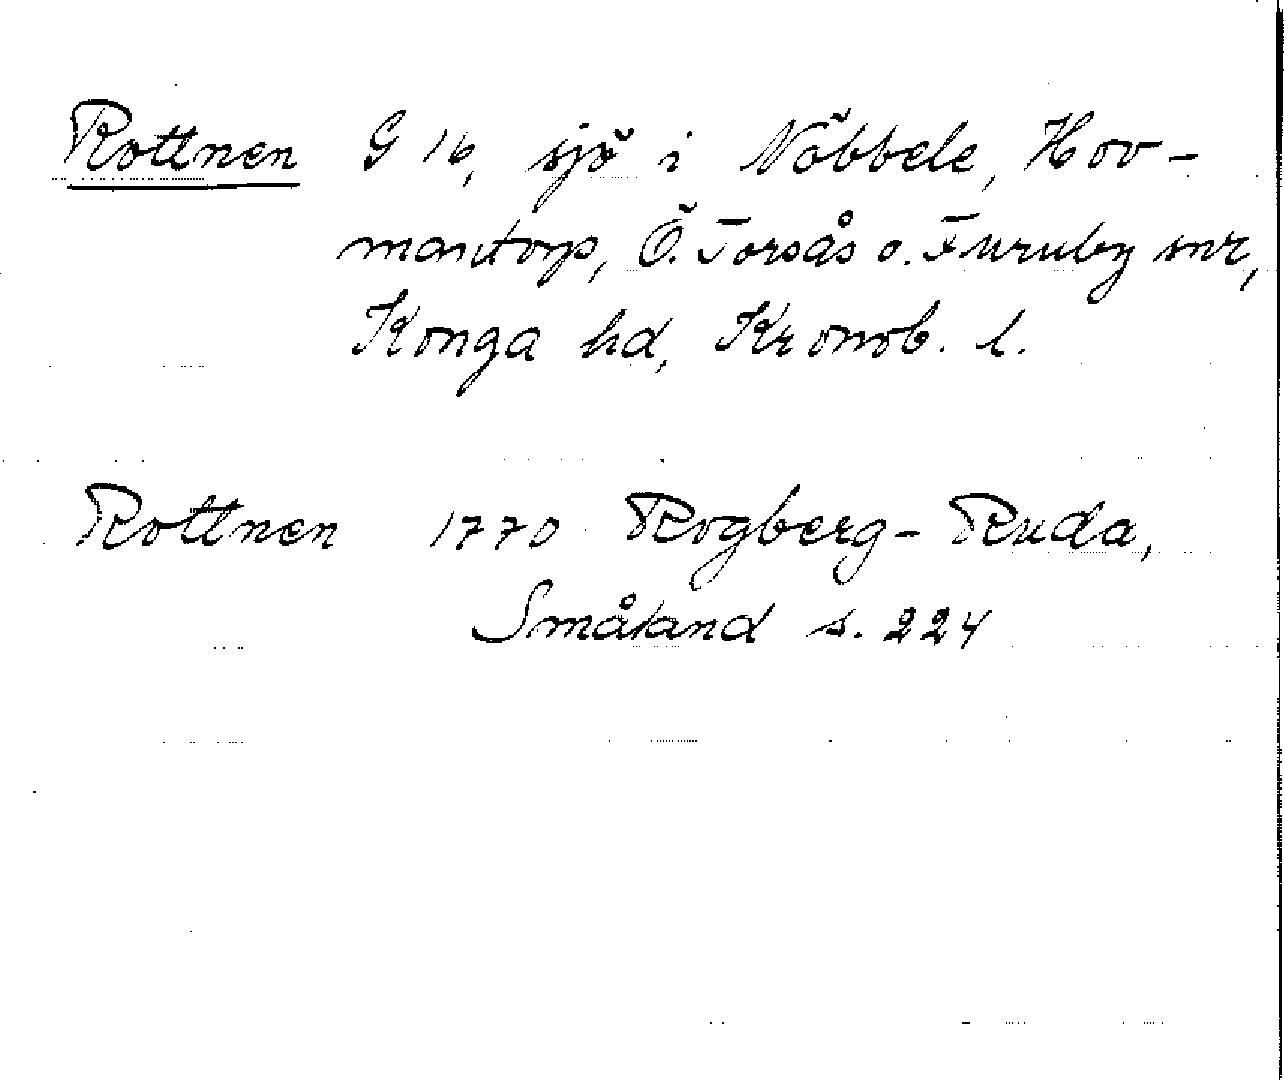 Rottnen G 16, sjö i Nöbbele, Hov-
mantorp, Ö. Torsås o. Furuby snr,
Konga hd, Kronob. l.
Rottnen 1770 Rogberg-Ruda,
Småland s. 224